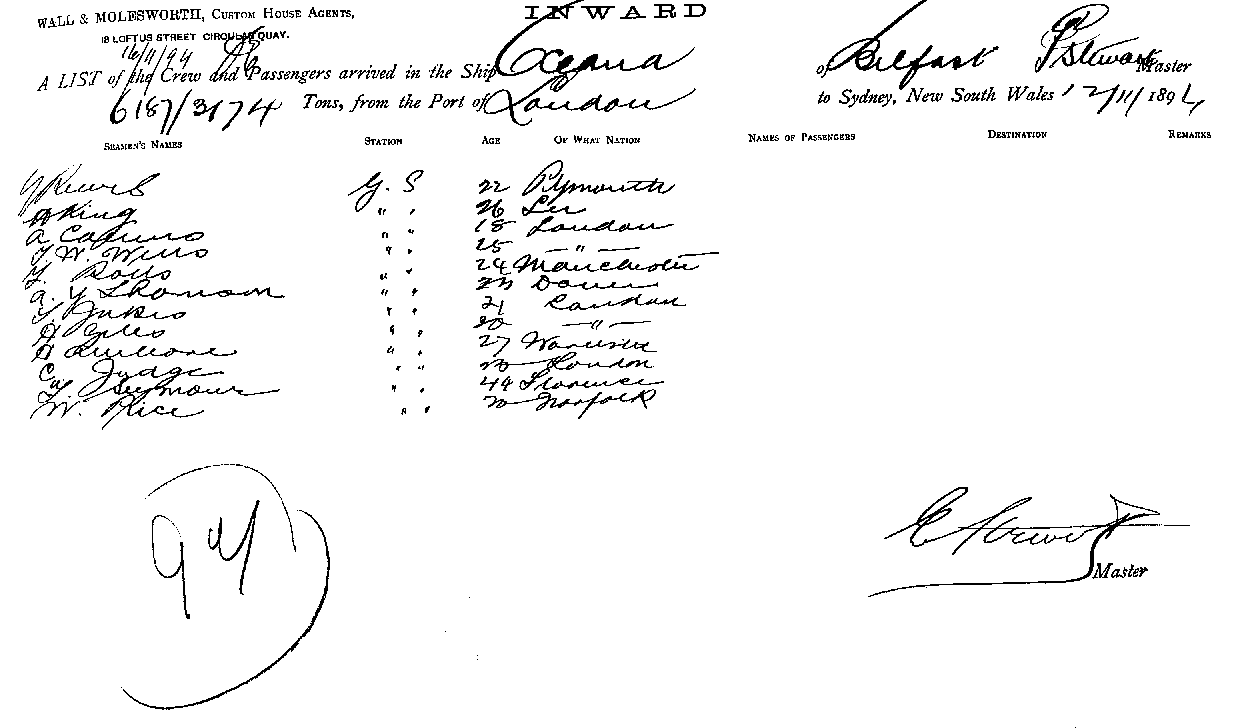 WALL & MOLESWORTH, CUSTOM HOUSE AGENTS,
18 LOFTUS STREET CIRCULAR QUAY.
INWARD
16/11/94
A LIST of the Crew and Passengers arrived in the Ship Oceana of Belfast P Stewart Master
6187/3174 Tons, from the Port of London to Sydney, New South Wales 12/11/1894
SEAMEN'S NAMES STATION AGE OF WHAT NATION NAMES OF PASSENGERS DESTINATION REMARKS
G. S 22 Plymouth
A King " " 26
A " " 18 London
W. Wills " " 25 — " —
" " 24 Manchester
A. Y Thomson " " 23 Dover
" " 21 London
A Giles " " 20 — " —
A " " 27 Worcester
C. Judge " " London
Seymour " " 44 Florence
W. Rice " " 20 Norfolk
94
E Stewart
Master